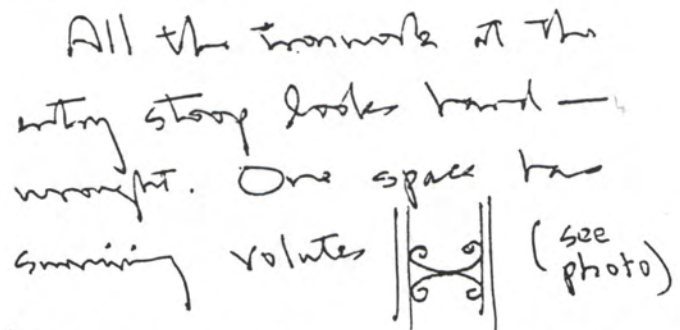 All the ironwork at the
entry stoop looks hand-
wrought. One space has
surviving volutes (see
photo)